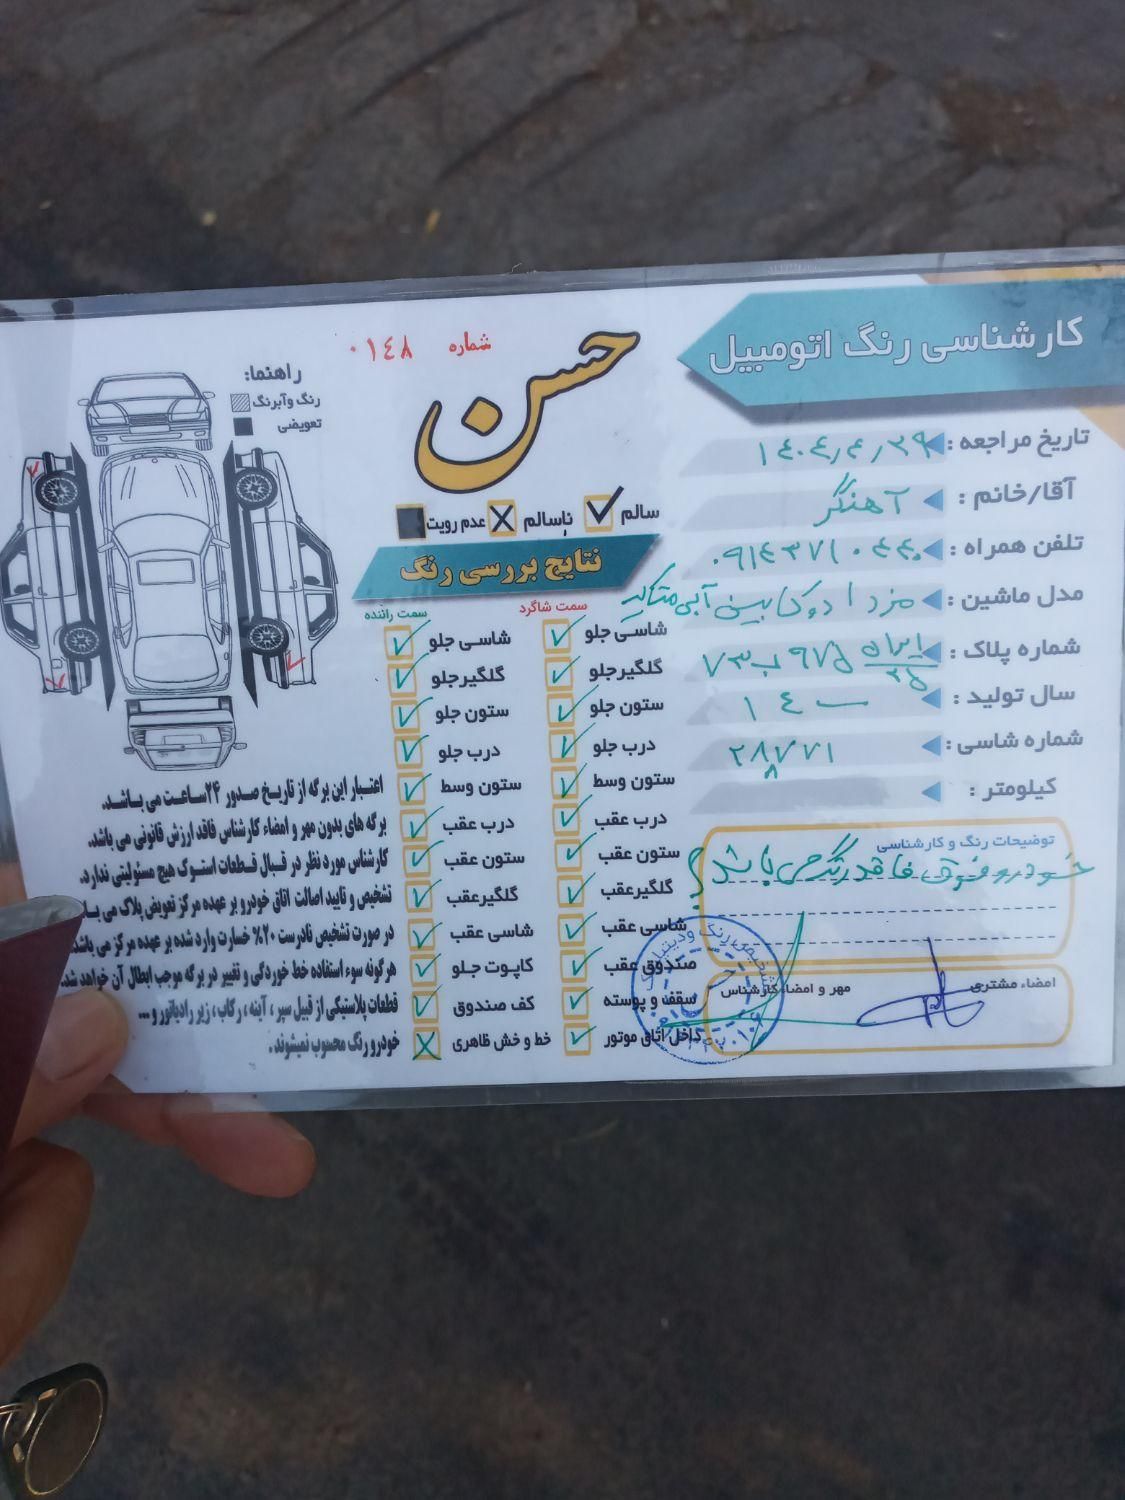 کارشناسی رنگ اتومبیل
حسن
شماره ۰۱۴۸
تاریخ مراجعه : ۱۴۰۴/۴/۲۹
آقا/خانم : آهنگر
تلفن همراه :
مدل ماشین : مزدا دوکابین آبی متالیک
شماره پلاک : ایران ۲۵ ۹۷۵ ب ۷۳
سال تولید : ۱۴۰۰
شماره شاسی :
کیلومتر :
توضیحات رنگ و کارشناسی
خودرو فوق فاقد رنگ می باشد
امضاء مشتری
مهر و امضاء کارشناس
سالم
ناسالم
عدم رویت
نتایج بررسی رنگ
سمت شاگرد
شاسی جلو
گلگیر جلو
ستون جلو
درب جلو
ستون وسط
درب عقب
ستون عقب
گلگیر عقب
شاسی عقب
صندوق عقب
سقف و پوسته
داخل اتاق موتور
سمت راننده
شاسی جلو
گلگیر جلو
ستون جلو
درب جلو
ستون وسط
درب عقب
ستون عقب
گلگیر عقب
شاسی عقب
کاپوت جلو
کف صندوق
خط و خش ظاهری
راهنما:
رنگ و آبرنگ
تعویضی
اعتبار این برگه از تاریخ صدور ۲۴ ساعت می باشد.
برگه های بدون مهر و امضاء کارشناس فاقد ارزش قانونی می باشد.
کارشناس مورد نظر در قبال قطعات استوک هیچ مسئولیتی ندارد.
تشخیص و تایید اصالت اتاق خودرو بر عهده مرکز تعویض پلاک می با
در صورت تشخیص نادرست ۲۰% خسارت وارد شده بر عهده مرکز می باشد
هرگونه سوء استفاده خط خوردگی و تغییر در برگه موجب ابطال آن خواهد شد.
قطعات پلاستیکی از قبیل سپر ، آینه ، رکاب ، زیر رادیاتور و ...
خودرو رنگ محسوب نمیشوند .